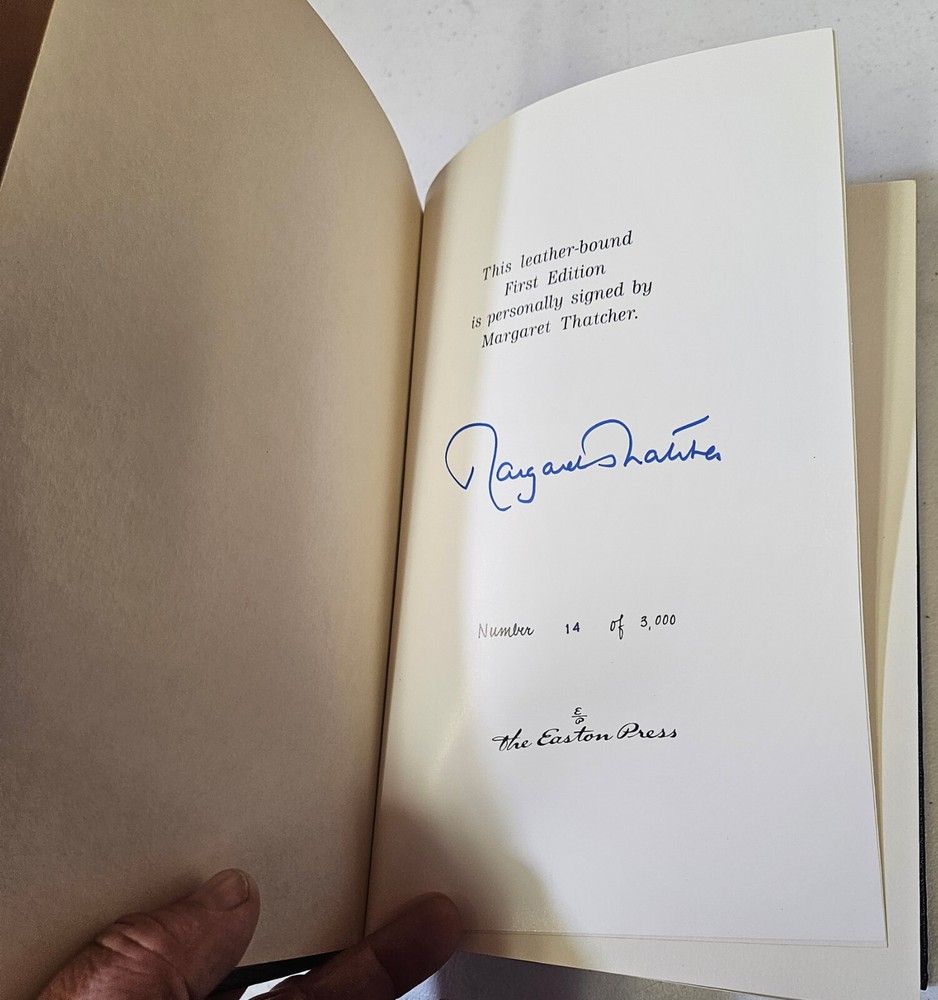 This leather-bound
First Edition
is personally signed by
Margaret Thatcher.
Margaret Thatcher
Number 14 of 3,000
E
P
the Easton Press